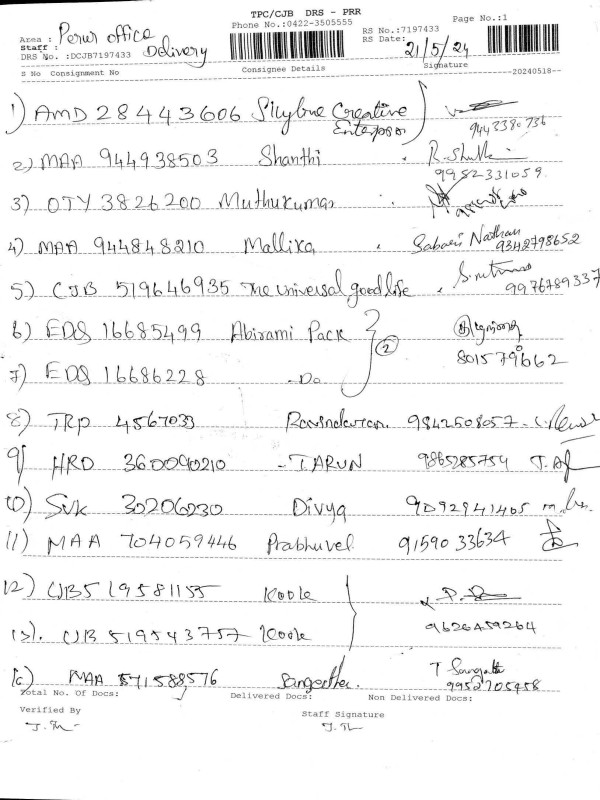 TPC/CJB DRS - PRR
Phone No.:0422-3505555
Page No.:1
Area : Perur office
Staff : Delivery
DRS No. :DCJB7197433
RS No.:7197433
RS Date: 21/5/24
S No Consignment No Consignee Details Signature --20240518--
1) AMD 28443606 Creative
9443380736
2) MAA 944938503 Shanthi
9952331059
3) OTY 3826200 Muthukumar
4) MAA 944848210 Mallika Sabari Nathan
9342798652
5) CJB 519646935 The universal good life
9976789337
6) EDS 16685499 Abirami Pack
2
8015799662
7) EDS 16686228 - Do
8) TRP 4567033 9842508057
9) HRD 360090210 - TARUN 9865285754
10) SVK 30206230 Divya 9092941405
11) MAA 704059446 Prabhuvel 9159033634
12) CJB 519581155 Koole
9626459264
13). CJB 519543757 Koole
MAA 571588576 Sangeetha T Sangeetha
9952705458
Total No. Of Docs: Delivered Docs: Non Delivered Docs:
Verified By Staff Signature